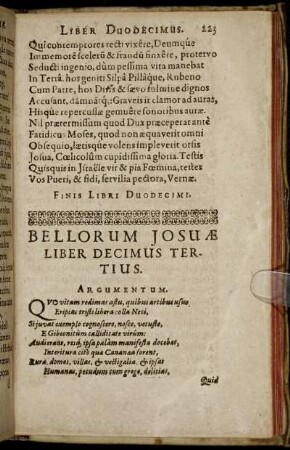 LIBER DUODECIMUS. 223
Qui contemptores recti vixêre, Deumque
Immemorē scelerū & frandū finxêre, protervo
Seducti ingenio, dum pessima vita manebat
In Terrâ: hos geniti Silpâ Pillâque, Rubeno
Cum Patre, hos & sævo fulmine dignos
Accusant, dāmnātq́;: Graveis it clamor ad auras,
Hisque repercussæ gemuêre sonoribus auræ.
Nil prætermissum quod Dux præceperat antè
Fatidicus Moses, quod non æquaverit omni
Obsequio, lætisque volens impleverit orsis
Josua, Cœlicolûm cupidissima gloria. Testis
Quisquis in Jsraële vir & pia Fœmina, testes
Vos Pueri, & fidi, servilia pectora, Vernæ.
FINIS LIBRI DUODECIMI.
BELLORUM JOSUÆ
LIBER DECIMUS TER-
TIUS.
ARGUMENTUM.
QVo vitam redimas astu, quibus artibus usus
Eripias tristi libera colla Neci,
Si juvat exemplo cognoscere, nosce, vetusto,
E Gibeonitûm calliditate virûm:
Audierans, resq́; ipsa palàm manifesta docebat,
Interitura citò qua Cananæa forent,
Rura, domos, villas, & vectigalia, & ipsas
Humanas, pecudum cum grege, delicias,
Quid